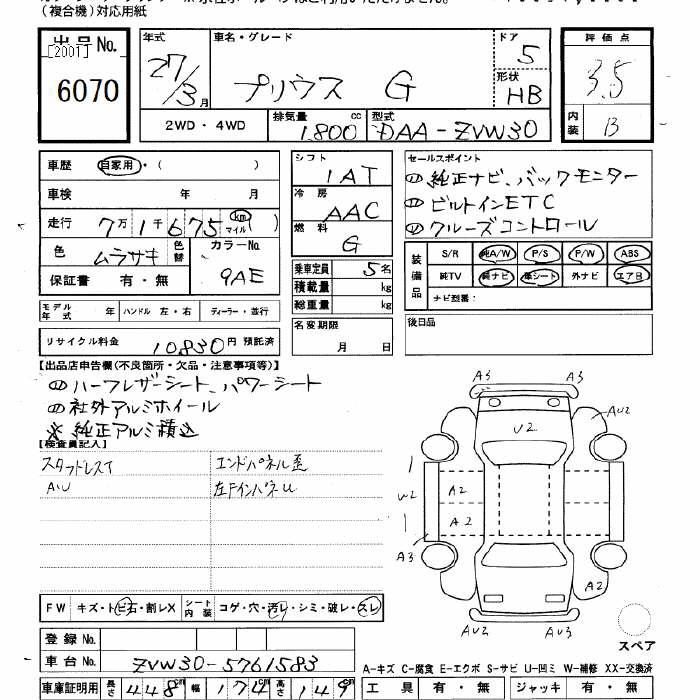 (複合機)対応用紙
出品No.
[2001]
6070
年式 車名・グレード ドア 評価点
27/3月 プリウス G 5 3.5
形状 HB
内装 B
2WD・4WD 排気量 1.800 cc 型式 DAA-ZVW30
車歴 自家用・( )
車検 年 月
走行 7万1千675 km マイル
色 ムラサキ 色替 カラーNo. 9AE
保証書 有・無
モデル年式 年 ハンドル 左・右 ディーラー・並行
リサイクル料金 10830円 預託済
シフト 1AT
冷房 AAC
燃料 G
乗車定員 5名
積載量 kg
総重量 kg
名変期限
月 日
セールスポイント
純正ナビ、バックモニター
ビルトインETC
クルーズコントロール
装備品 S/R 純A/W P/S P/W ABS
純TV 純ナビ 革シート 外ナビ エアB
ナビ型番:
後日品
【出品店申告欄(不良箇所・欠品・注意事項等)】
ハーフレザーシート、パワーシート
社外アルミホイール
※純正アルミ積込
【検査員記入】
スタッドレスT エンドパネル歪
AU 左Fインパネu
A3 A3
U2 AU2
A2
A2
A3
A2
AU2 AU3
スペア
FW キズ・トビ石・割レX シート内装 コゲ・穴・汚レ・シミ・破レ・スレ
登録No.
車台No. ZVW30-5761583
A-キズ C-腐食 E-エクボ S-サビ U-凹ミ W-補修 XX-交換済
車庫証明用 長さ 448cm 幅 174cm 高さ 149cm 工具 有・無 ジャッキ 有・無